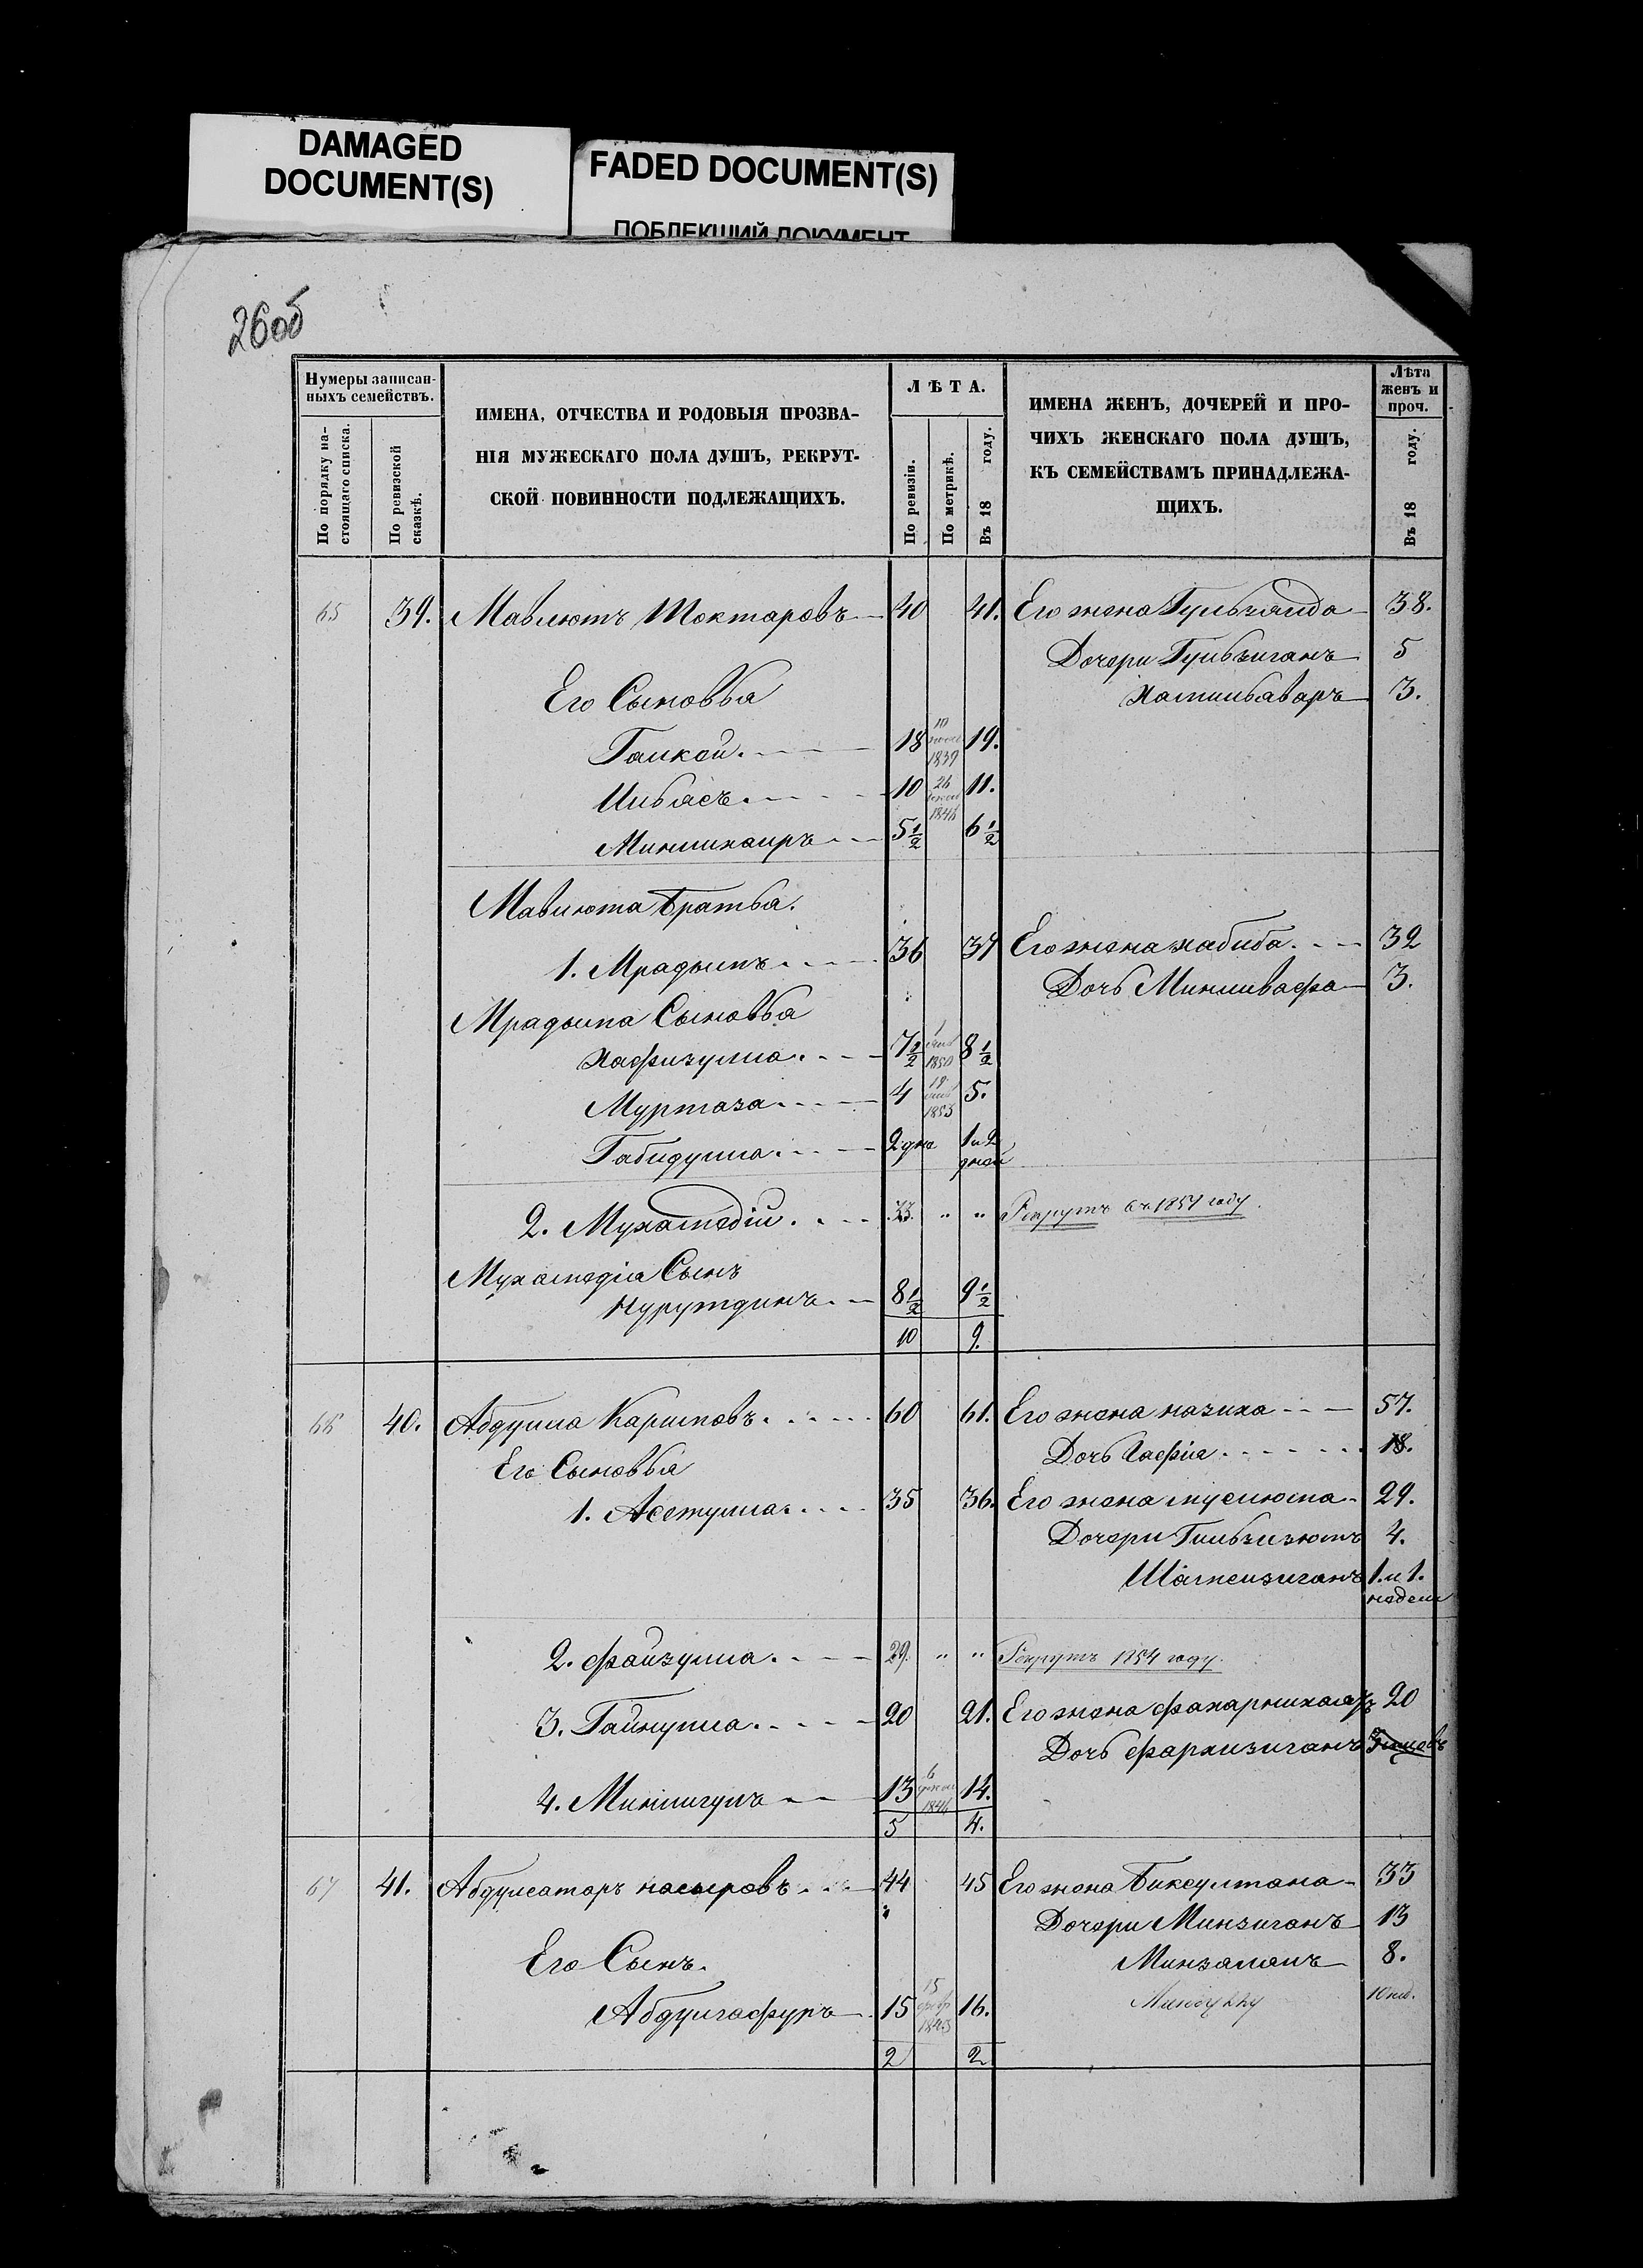 DAMAGED
DOCUMENT(S)
FADED DOCUMENT(S)
ПОБЛЕКШИЙ ДОКУМЕНТ
26об
Нумеры записан-
ныхъ семействъ.
По порядку на-
стоящаго списка.
По ревизской
сказкѣ.
ИМЕНА, ОТЧЕСТВА И РОДОВЫЯ ПРОЗВА-
НІЯ МУЖЕСКАГО ПОЛА ДУШЪ, РЕКРУТ-
СКОЙ ПОВИННОСТИ ПОДЛЕЖАЩИХЪ.
ЛѢТА.
По ревизіи.
По метрикѣ.
Въ 18 году.
ИМЕНА ЖЕНЪ, ДОЧЕРЕЙ И ПРО-
ЧИХЪ ЖЕНСКАГО ПОЛА ДУШЪ,
КЪ СЕМЕЙСТВАМЪ ПРИНАДЛЕЖА-
ЩИХЪ.
Лѣта
женъ и
проч.
Въ 18 году.
65 39. Мавлютъ Токтаровъ 40 41. Его жена 38.
Дочери Гульзиганъ 5
3.
Его Сыновья
18 1839 19.
Ильясъ 10 26 11.
Миннихаиръ 5 1/2 6 1/2
Мавлюта Братья.
1. Мрадымъ 36 37 Его жена хабиба 32
Дочь Миннивафа 3.
Мрадыма Сыновья
Хафизулла 7 1/2 1850 8 1/2
Муртаза 4 19 1853 5.
Габидулла 2 дня 1 и 2
дней
2. Мухамедій 33. " " Рекрутъ въ 1854 году.
Мухамедіа Сынъ
Нурутдинъ 8 1/2 9 1/2
10 9.
66 40. Абдулла Каримовъ 60 61. Его жена назиха 57.
Дочь Сафіа 18.
Его Сыновья
1. Асетулла 35 36. Его жена муслюма 29.
Дочери 4.
Шамсизиганъ 1. и 1.
недели
2. файзулла 29. " " Рекрутъ 1854 году.
3. Гайнулла 20 21. Его жена 20
Дочь фархизиганъ
4. Миннигулъ 13 6 1844 14.
5 4.
67 41. Абдулсатаръ насыровъ 44 45 Его жена Биксултана 33
Дочери Минзиганъ 13
Его Сынъ. Минзамалъ 8.
Абдулгафуръ 15 15 февр 1843 16. 10 нед.
2 2